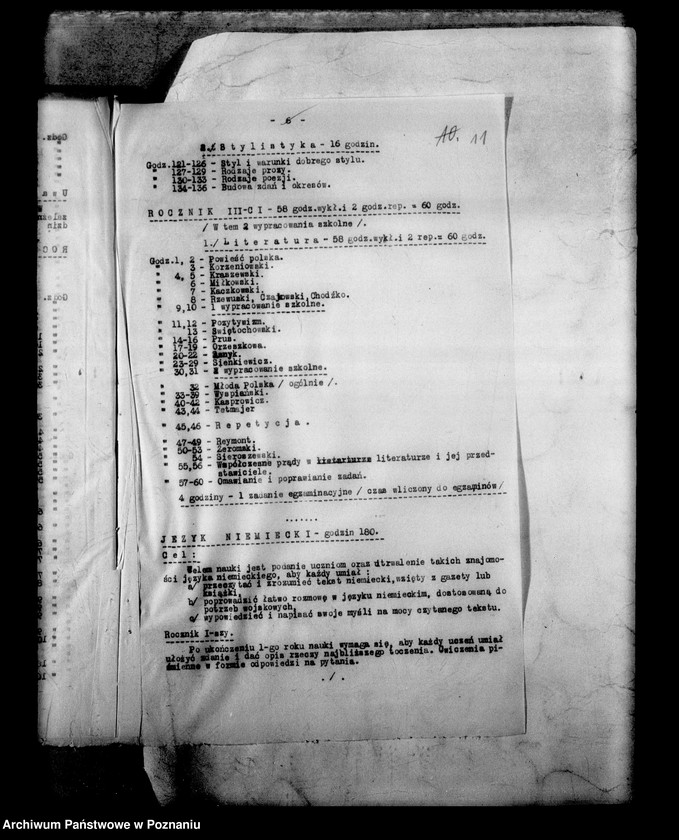 - 6 -
10. 11
S t y l i s t y k a - 16 godzin.
Godz.121-126 - Styl i warunki dobrego stylu.
" 127-129 - Rodzaje prozy.
" 130-133 - Rodzaje poezji.
" 134-136 - Budowa zdań i okresów.
R O C Z N I K III-C I - 58 godz.wykł.i 2 godz.rep. = 60 godz.
/ W tem 2 wypracowania szkolne /.
1./ L i t e r a t u r a - 58 godz.wykł.i 2 rep.= 60 godz.
Godz.1, 2 - Powieść polska.
" 3 - Korzeniowski.
" 4, 5 - Kraszewski.
" 6 - Miłkowski.
" 7 - Kaczkowski.
" 8 - Rzewuski, Czajkowski,Chodźko.
" 9,10 - 1 wypracowanie szkolne.
" 11,12 - Pozytywizm.
" 13 - Świętochowski.
" 14-16 - Prus.
" 17-19 - Orzeszkowa.
" 20-22 - Asnyk.
" 23-29 - Sienkiewicz.
" 30,31 - 2 wypracowanie szkolne.
" 32 - Młoda Polska / ogólnie /.
" 33-39 - Wyspiański.
" 40-42 - Kasprowicz.
" 43,44 - Tetmajer
" 45,46 - R e p e t y c j a .
" 47-49 - Reymont.
" 50-53 - Żeromski.
" 54 - Sieroszewski.
" 55,56 - Współczesne prądy w literaturze i jej przed-
stawiciele.
" 57-60 - Omawianie i poprawianie zadań.
4 godziny - 1 zadanie egzaminacyjne / czas wliczony do egzaminów/
.......
J E Z Y K N I E M I E C K I - godzin 180.
C e l :
Celem nauki jest podanie uczniom oraz utrwalenie takich znajomo-
ści języka niemieckiego, aby każdy umiał :
a/ przeczytać i zrozumieć tekst niemiecki,wzięty z gazety lub
książki
b/ poprowadzić łatwo rozmowę w języku niemieckim, dostosowaną do
potrzeb wojskowych,
c/ wypowiedzieć i napisać swoje myśli na mocy czytanego tekstu.
Rocznik I-szy.
Po ukończeniu 1-go roku nauki wymaga się, aby każdy uczeń umiał
ułożyć zdanie i dać opis rzeczy najbliższego otoczenia. Ćwiczenia pi-
śmienne w formie odpowiedzi na pytania.
./.
Archiwum Państwowe w Poznaniu